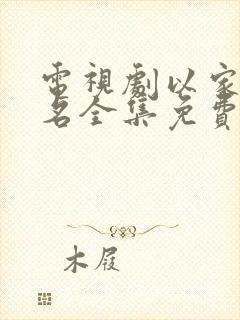 電視劇以家
名全集免費
木屐